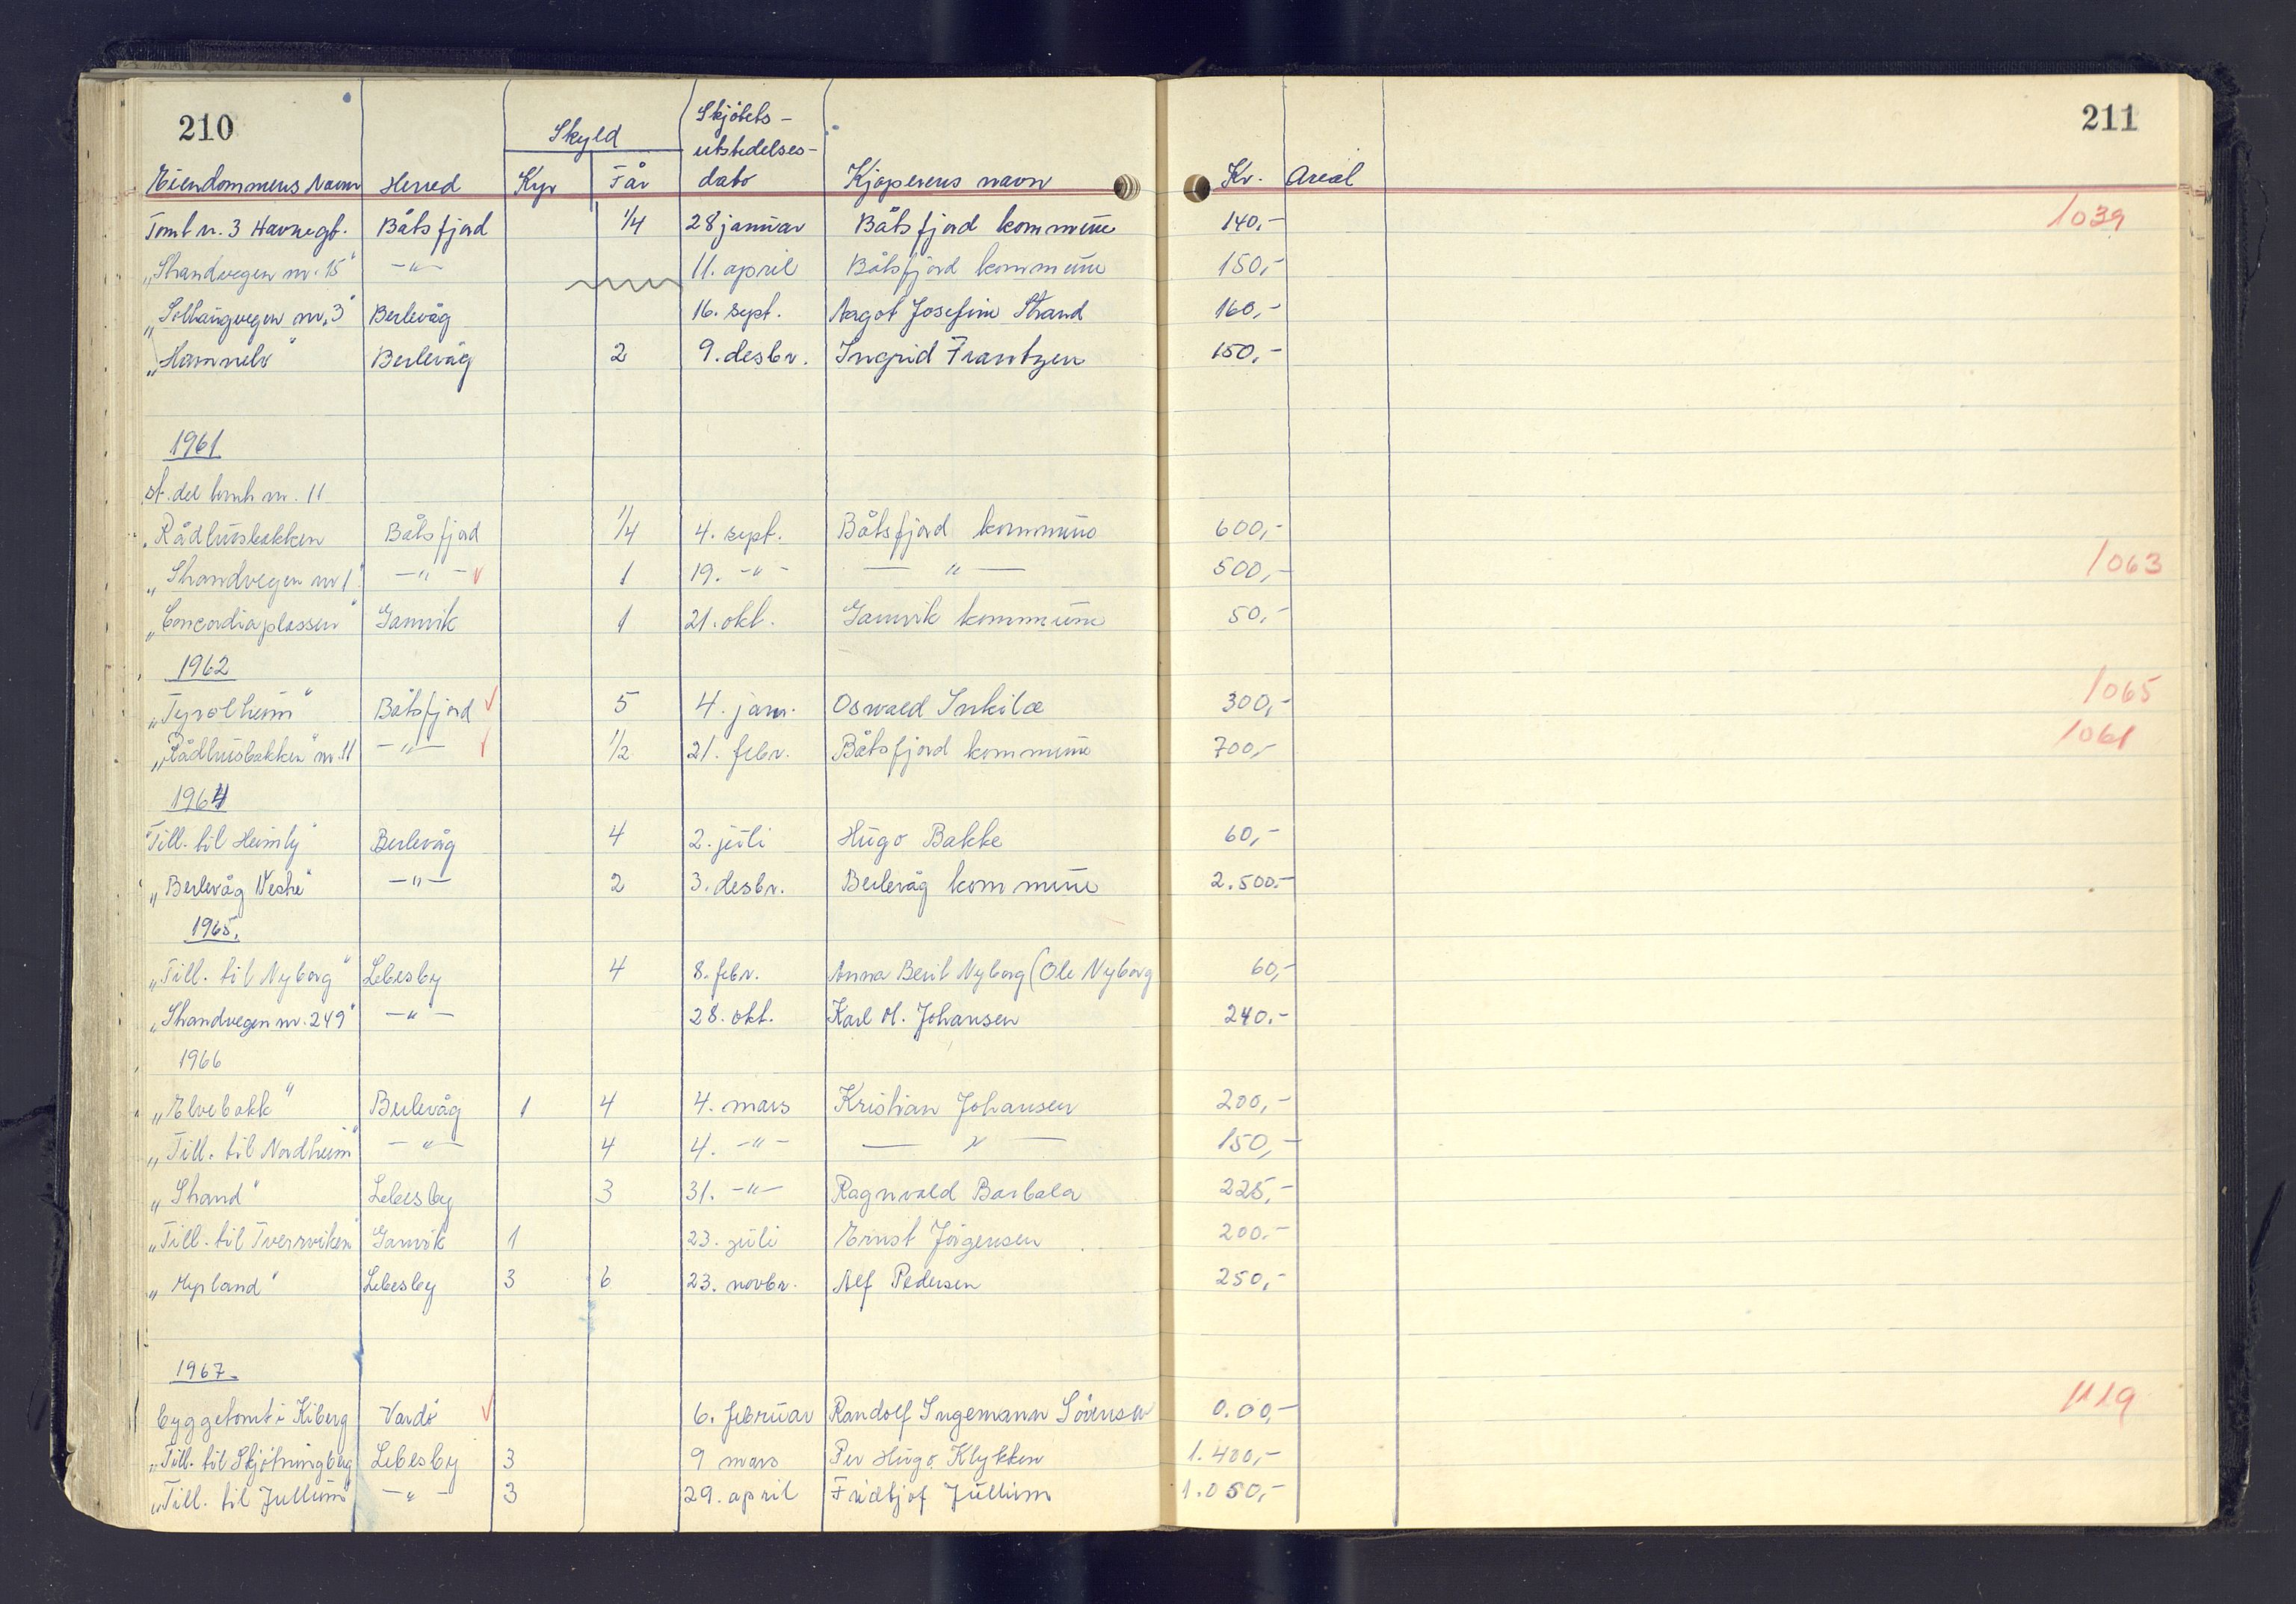 210
211
Skyld
Skjøtets-
utstedelses-
Eiendommens Navn Herred Kyr Får dato Kjøperens navn Kr. Areal
Tomt nr. 3 Havnegt. Båtsfjord 1/4 28 januar Båtsfjord kommune 140,- 1039
„Strandvegen nr. 15" -"- 11. april Båtsfjord kommune 150,-
„Solhaugvegen nr. 3" Berlevåg 16. sept. Aagot Josefine Strand 160,-
„Hamnelv" Berlevåg 2 9. desbr. Ingrid Frantzen 150,-
1961
st. del tomt nr. 11
Rådhusbakken Båtsfjord 1/4 4. sept. Båtsfjord kommune 600,-
„Strandvegen nr 1" -"- 1 19. -"- -"- 500,- 1063
„Concordiaplassen" Gamvik 1 21. okt. Gamvik kommune 50,-
1962
„Tyrolheim" Båtsfjord 5 4. jan. Oswald Inkilæ 300,- 1065
„Rådhusbakken" nr. 11 -"- 1/2 21. febr. Båtsfjord kommune 700,- 1061
1964
"Till. til Heimly" Berlevåg 4 2. juli Hugo Bakke 60,-
„Berlevåg Vestre" -"- 2 3. desbr. Berlevåg kommune 2.500,-
1965.
„Till. til Nyborg" Lebesby 4 8. febr. Anna Berit Nyborg (Ole Nyborg 60,-
„Strandvegen nr. 249" -"- 28. okt. Karl M. Johansen 240.-
1966
„Elvebakk" Berlevåg 1 4 4. mars Kristian Johansen 200,-
„Till. til Nordheim" -"- 4 4. -"- -"- 150,-
„Strand" Lebesby 3 31. -"- Ragnvald Barbala 225,-
„Till. til Tverrviken" Gamvik 1 23. juli Ernst Jörgensen 200.-
„Myrland" Lebesby 3 6 23. novbr. Alf Pedersen 250,-
1967.
byggetomt i Kiberg Vardö 6. februar Randolf Ingemann Sörensen 0.00,- 1119
„Till. til Skjötningberg Lebesby 3 9 mars Per Hugo Klykken 1.400,-
„Till. til Jullum" -"- 3 29. april Fridtjof Jullum 1.050,-